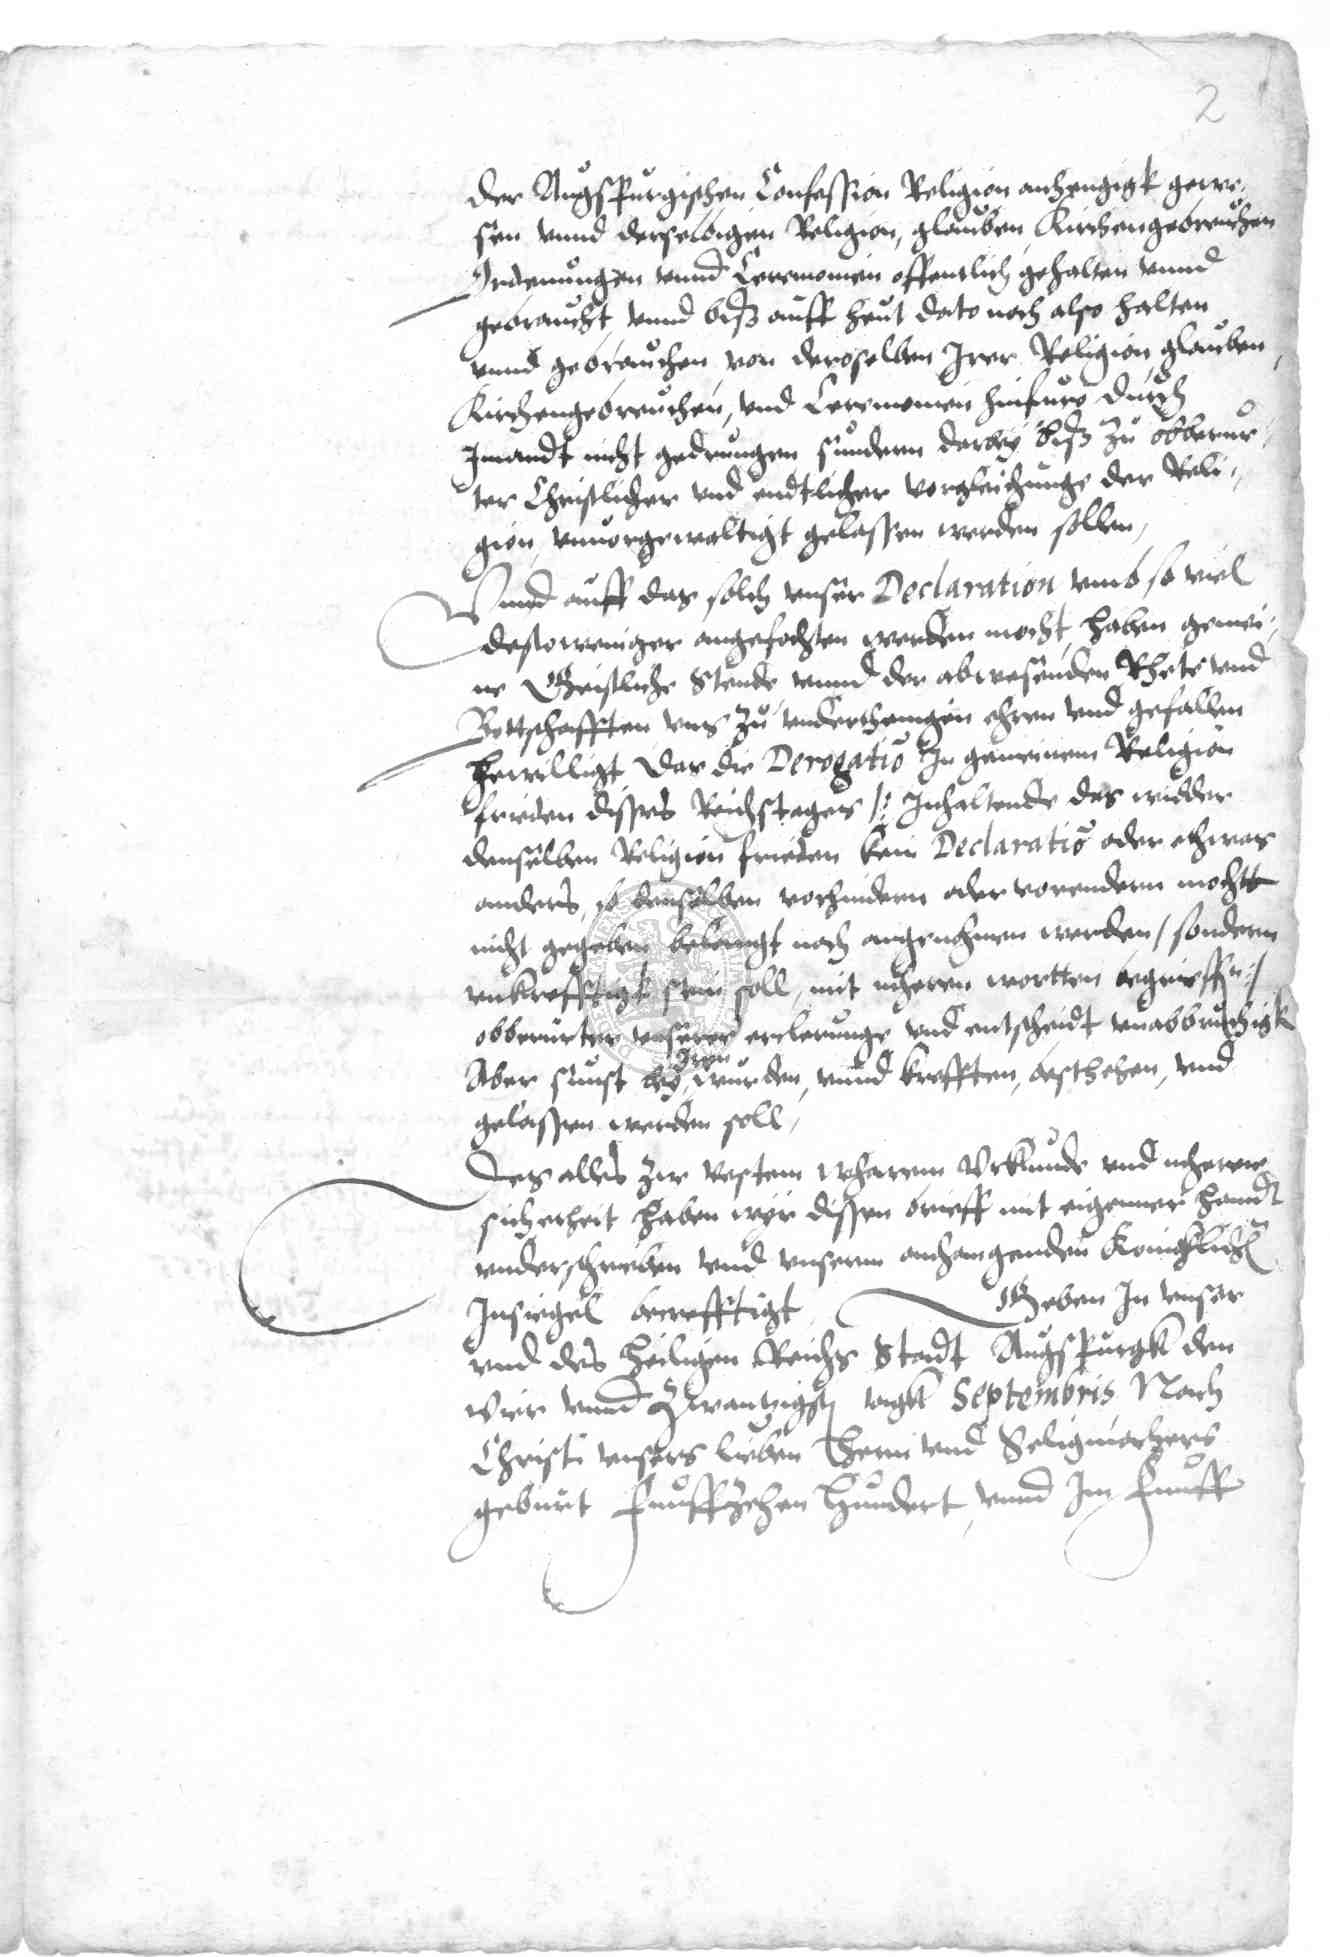 2
der Augspurgischen Confession Religion anhengigk gewe,
sen vnnd derselbigen Religion, glauben, Kirchengebreuchen
Ordenungen vnnd Ceremonien offentlich gehalten vnnd
gebraucht, vnnd biß auff heut dato noch also halten
vnnd gebrauchen von deroselben Irer Religion, glauben,
Kirchengebreuchen, vnd Ceremonien hinfuro durch
Jmandt nicht gedrungen sundern darbey biß zu obberur,
ter Christlicher vnd endtlicher vorgleichunge der Reli,
gion, vnuorgewaltigt gelassen werden sollen,
Vnnd auff das solch vnser Declaration vmb so viel
destoweniger angefochten werden mocht, haben gemei,
ne Geistliche Stende vnnd der abwesenden Rhete vnd
Bottschafften vns zu vnderthenigen ehren vnd gefallen
bewilligt das die Derogatio In gemeinem Religion
frieden disses Reichstages /: Inhaltende das widder
denselben Religion frieden kein Declaratio oder ethwas
anders, so denselben vorhindern oder vorendern mochtt
nicht gegeben belangt noch angenohmen werden / sondern
vnkrefftigk sein soll, mit mheren wortten begrieffn :/
obberurter vnserer erclerunge vnd entscheidt vnabbruchigk
Aber sunst bey Iren wurden, vnnd krefften, besthehen, vnd
gelassen werden soll,
Des alles zur vestem wharem Vrkunde vnd
sicherheit haben wyr dissen brieff mit eigenner handt
vnderschrieben vnd vnserm anhangenden Koniglich
Insiegel becrefftigt Geben In vnser
vnd des heiligen Reichs Stadt Augspurgk den
vier vnnd Zwantzigst tagk Septembris Nach
Christi vnsers lieben Hern vnd Seligmachers
geburt Funffzehen Hundert, vnnd Im Funff